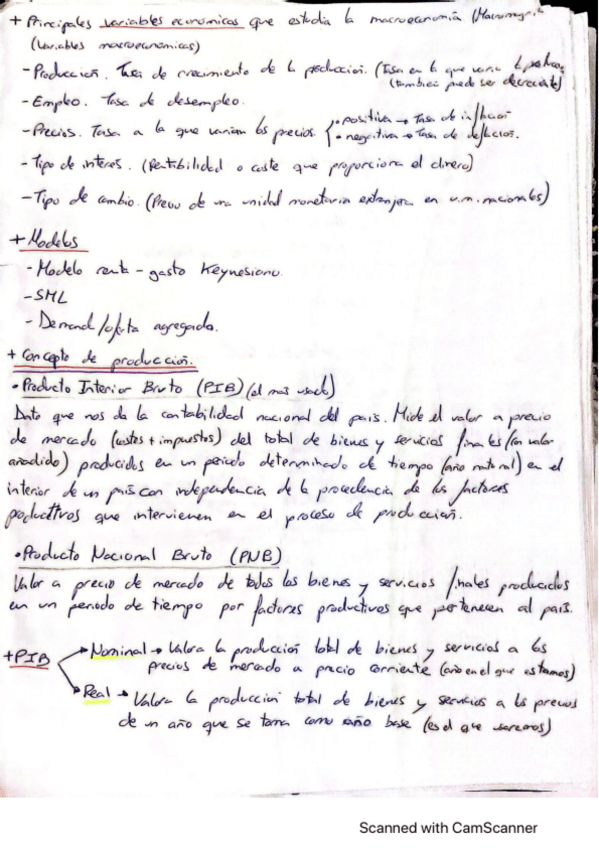 + Principales variables económicas que estudia la macroeconomía
(Variables macroeconómicas)
- Producción. Tasa de crecimiento de la producción. (Tasa en la que varía la
(también puede ser decreciente)
- Empleo. Tasa de desempleo.
- Precios. Tasa a la que varían los precios. • positiva → Tasa de inflación
• negativa → Tasa de deflación.
- Tipo de interés. (Rentabilidad o coste que proporciona el dinero)
- Tipo de cambio. (Precio de una unidad monetaria extranjera en u.m. nacionales)
+ Modelos
- Modelo renta - gasto Keynesiano
- SML
- Demand/oferta agregada.
+ Concepto de producción.
• Producto Interior Bruto (PIB) (el más usado)
Dato que nos da la contabilidad nacional del país. Mide el valor a precio
de mercado (costes + impuestos) del total de bienes y servicios finales (con valor
añadido) producidos en un periodo determinado de tiempo (año natural) en el
interior de un país con independencia de la procedencia de los factores
productivos que intervienen en el proceso de producción.
• Producto Nacional Bruto (PNB)
Valor a precio de mercado de todos los bienes y servicios finales producidos
en un periodo de tiempo por factores productivos que pertenecen al país.
+ PIB
Nominal → Valora la producción total de bienes y servicios a los
precios de mercado a precio corriente (año en el que estamos)
Real → Valora la producción total de bienes y servicios a los precios
de un año que se toma como año base (es el que usaremos)
Scanned with CamScanner